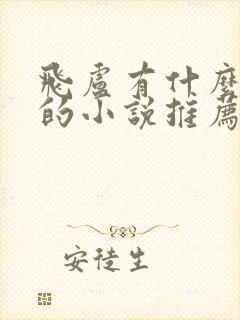 飛盧有什麼
的小說推薦
安徒生